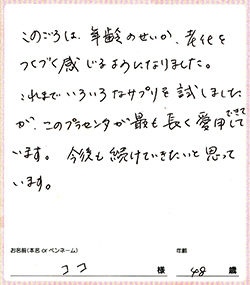 このごろは、年齢のせいか、老化を
つくづく感じるようになりました。
これまでいろいろなサプリを試しました
が、このプラセンタが最も長く愛用できて
います。今後も続けていきたいと思って
います。
お名前(本名 or ペンネーム)
年齢
ココ 様 48 歳